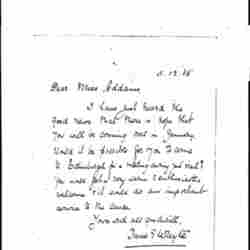 11.12.15
Dear Miss Addams
I have just heard the
good news that there is hope that
you will be coming over in January
Would it be possible for you to come
to Edinburgh for a meeting during your visit?
You would find a very warm & enthusiastic
welcome & it would do an important
service to the cause
Yours